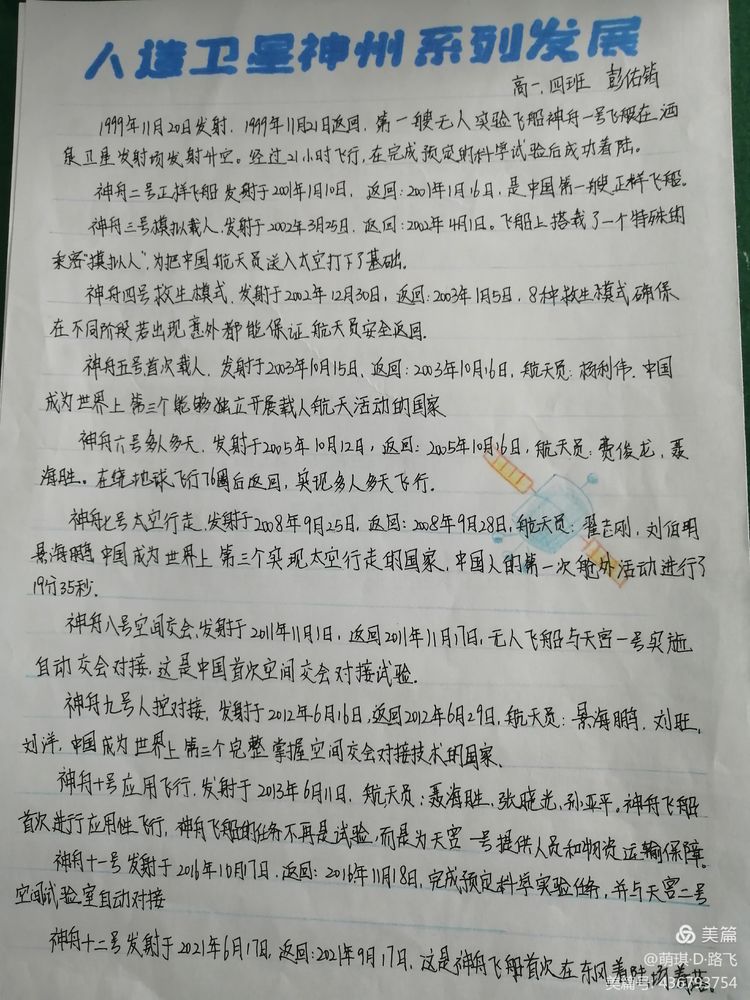 人造卫星神州系列发展
高一.四班 彭佑
1999年11月20日发射.1999年11月21日返回.第一艘无人实验飞船神舟一号飞船在酒
泉卫星发射场发射升空。经过21小时飞行,在完成预定的科学试验后成功着陆。
神舟二号正样飞船 发射于2001年1月10日,返回:2001年1月16日,是中国第一艘正样飞船。
神舟三号模拟载人,发射于2002年3月25日,返回:2002年4月1日。飞船上搭载了一个特殊的
乘客"模拟人",为把中国航天员送入太空打下了基础.
神舟四号救生模式.发射于2002年12月30日,返回:2003年1月5日,8种救生模式确保
在不同阶段若出现意外都能保证航天员安全返回.
神舟五号首次载人,发射于2003年10月15日.返回:2003年10月16日,航天员:杨利伟.中国
成为世界上第三个能够独立开展载人航天活动的国家
神舟六号多人多天.发射于2005年10月12日,返回:2005年10月16日,航天员:费俊龙,聂
海胜。在绕地球飞行76圈后返回,实现多人多天飞行.
神舟七号太空行走.发射于2008年9月25日,返回:2008年9月28日,航天员:翟志刚,刘伯明
景海鹏.中国成为世界上第三个实现太空行走的国家,中国人的第一次舱外活动进行了
19分35秒.
神舟八号空间交会,发射于2011年11月1日,返回2011年11月17日,无人飞船与天宫一号实施
自动交会对接,这是中国首次空间交会对接试验.
神舟九号人控对接,发射于2012年6月16日,返回2012年6月29日,航天员:景海鹏.刘旺.
刘洋,中国成为世界上第三个完整掌握空间交会对接技术的国家.
神舟十号应用飞行.发射于2013年6月11日,航天员:聂海胜,张晓光,孙亚平。神舟飞船
首次进行应用性飞行,神舟飞船的任务不再是试验,而是为天宫一号提供人员和物资运输保障。
神舟十一号发射于2016年10月17日,返回:2016年11月18日,完成预定科学实验任务,并与天宫二号
空间试验室自动对接
神舟十二号发射于2021年6月17日,返回:2021年9月17日,这是神舟飞船首次在东风着陆场着陆.
美篇
@萌琪·D·路飞
美篇号:436793754